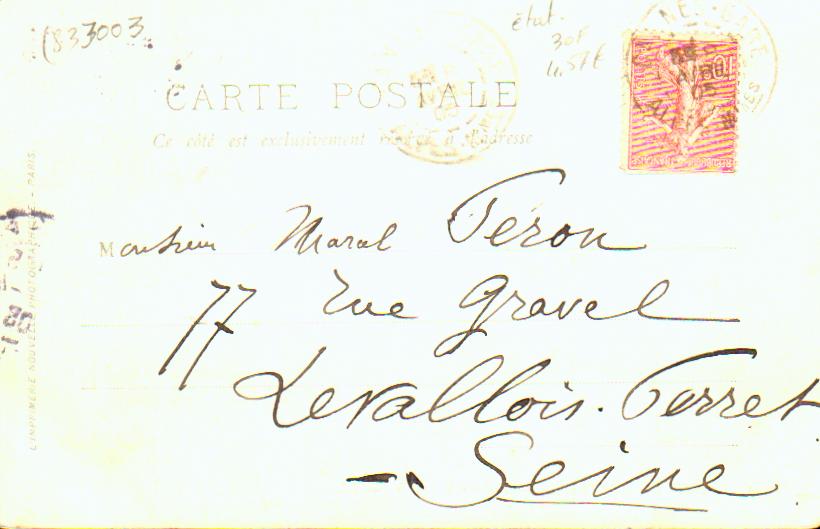 (833003
état.
30F
4.57€
CARTE POSTALE
Ce côté est exclusivement réservé à l'adresse
Monsieur Maral Peron
77 rue Gravel
Levallois-Perret
- Seine
L'IMPRIMERIE NOUVELLE PHOTOGRAPHIQUE - PARIS